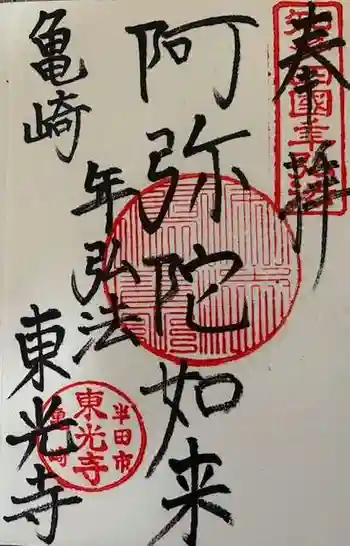 奉拝
阿弥陀如来
年弘法
亀崎
東光寺
半田市
東光寺
亀崎